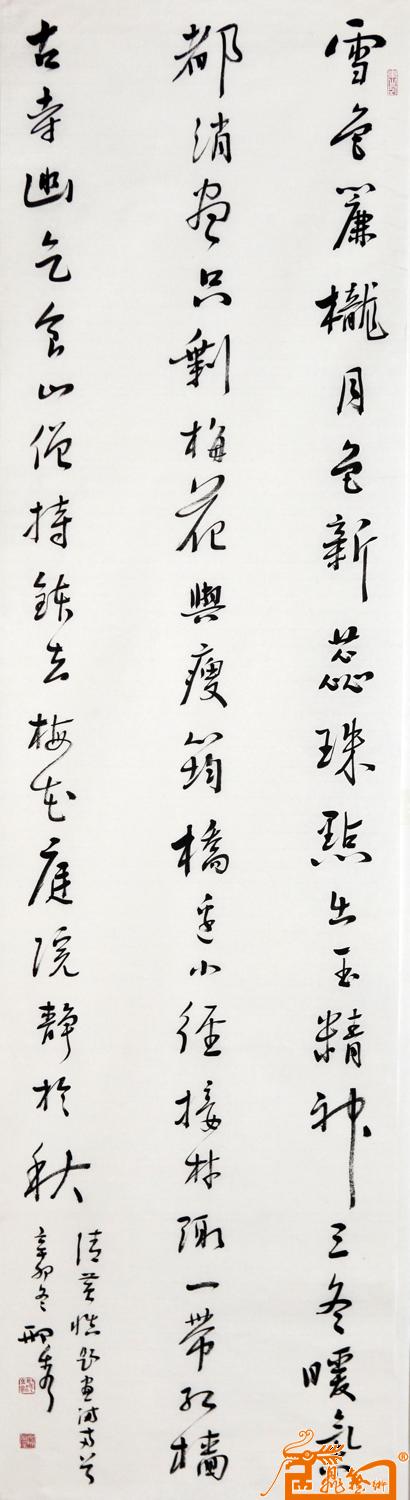 雪色簾櫳月色新蕊珠點出玉精神三冬暖氣
都消盡只剩梅花與瘦筠橋邊小徑接林陬一帶紅牆
古寺幽乞食山僧持鉢去梅花庭院靜於秋
清黃慎題畫詩首
辛卯冬